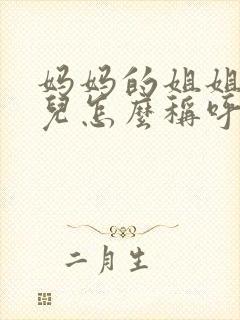 妈妈的姐姐
兒怎麼稱呼
二月生